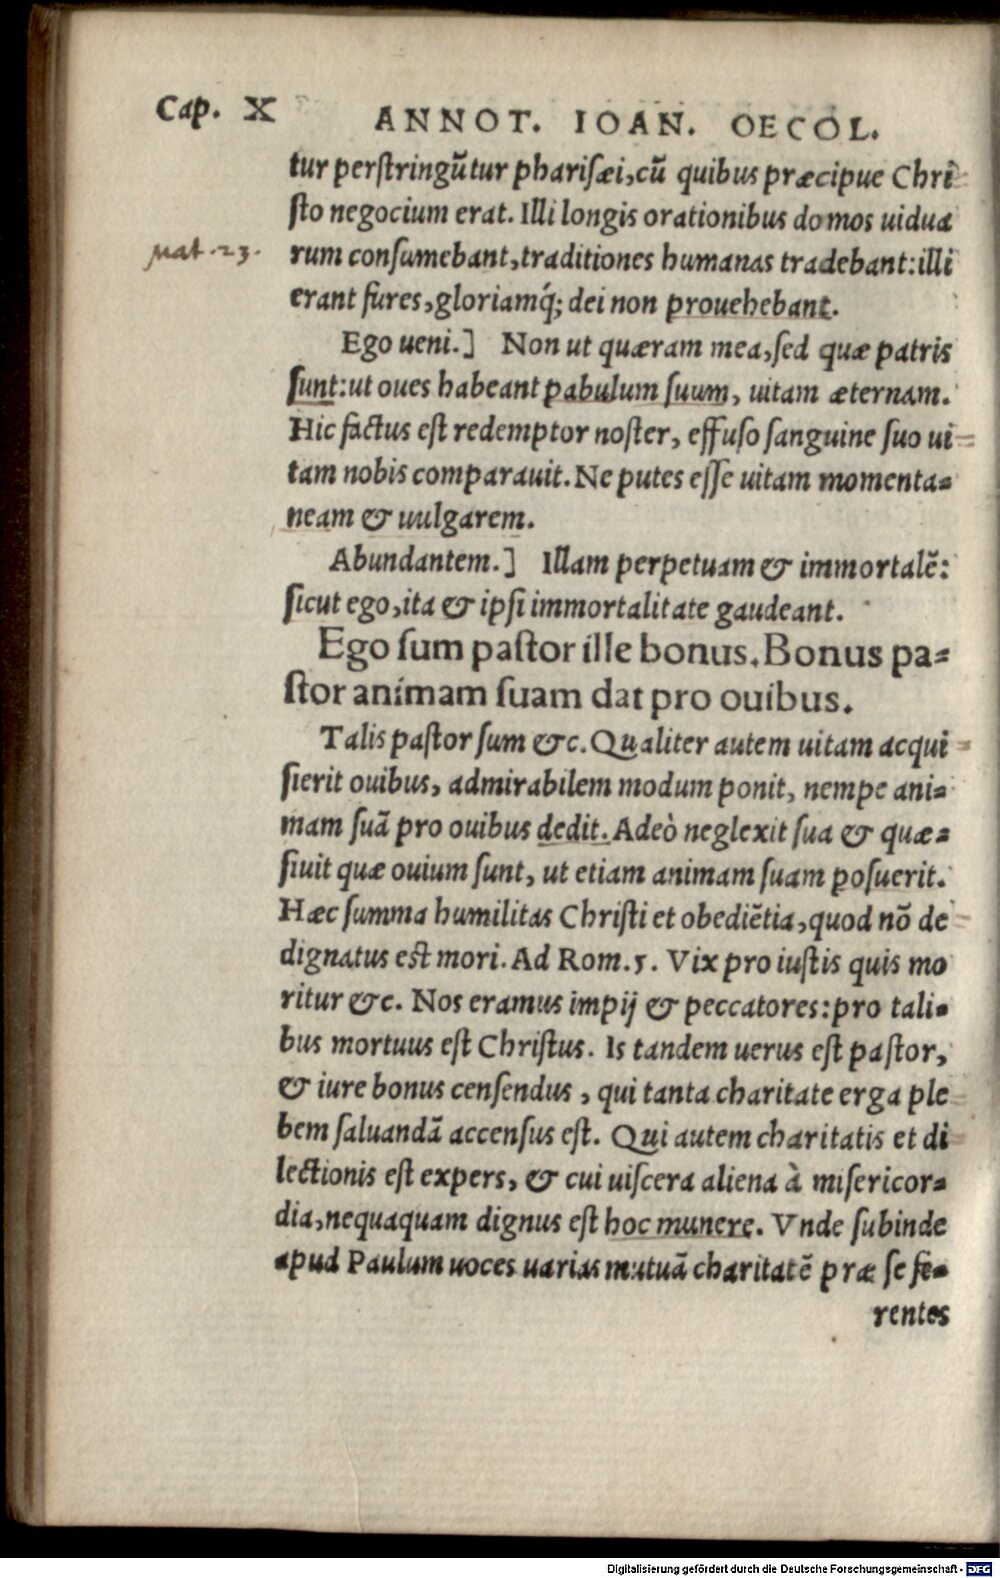 Cap. X ANNOT. IOAN. OECOL.
tur perſtringũtur phariſæi, cũ quibus præcipue Chri
ſto negocium erat. Illi longis orationibus domos uidua
Mat. 23.
rum conſumebant, traditiones humanas tradebant: illi
erant fures, gloriamq́; dei non prouehebant.
Ego ueni.] Non ut quæram mea, ſed quæ patris
ſunt: ut oues habeant pabulum ſuum, uitam æternam.
Hic factus eſt redemptor noſter, effuſo ſanguine ſuo ui-
tam nobis comparauit. Ne putes eſſe uitam momenta-
neam & uulgarem.
Abundantem.] Illam perpetuam & immortalẽ:
ſicut ego, ita & ipſi immortalitate gaudeant.
Ego ſum paſtor ille bonus. Bonus pa-
ſtor animam ſuam dat pro ouibus.
Talis paſtor ſum &c. Qualiter autem uitam acqui
ſierit ouibus, admirabilem modum ponit, nempe ani-
mam ſuã pro ouibus dedit. Adeò neglexit ſua & quæ-
ſiuit quæ ouium ſunt, ut etiam animam ſuam poſuerit.
Hæc ſumma humilitas Chriſti et obediẽtia, quod nõ de
dignatus eſt mori. Ad Rom. 5. Vix pro iuſtis quis mo
ritur &c. Nos eramus impij & peccatores: pro tali-
bus mortuus eſt Chriſtus. Is tandem uerus eſt paſtor,
& iure bonus cenſendus, qui tanta charitate erga ple
bem ſaluandã accenſus eſt. Qui autem charitatis et di
lectionis eſt expers, & cui uiſcera aliena à miſericor-
dia, nequaquam dignus eſt hoc munere. Vnde ſubinde
apud Paulum uoces uarias mutuã charitatẽ præ ſe fe-
rentes
Digitalisierung gefördert durch die Deutsche Forschungsgemeinschaft - DFG